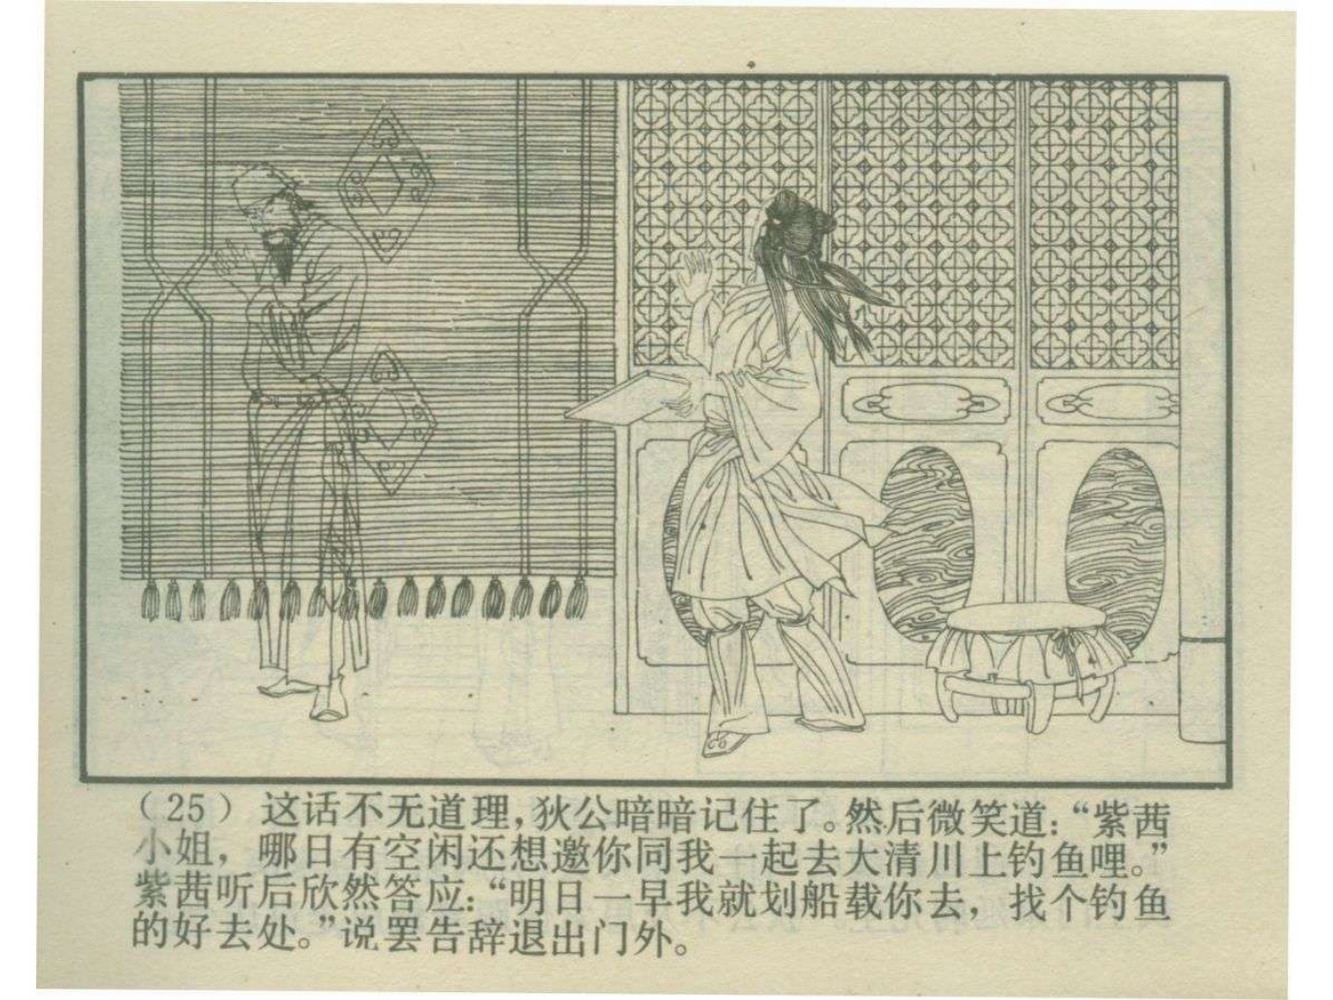 （25） 这话不无道理，狄公暗暗记住了。然后微笑道：“紫茜
小姐，哪日有空闲还想邀你同我一起去大清川上钓鱼哩。”
紫茜听后欣然答应：“明日一早我就划船载你去，找个钓鱼
的好去处。”说罢告辞退出门外。